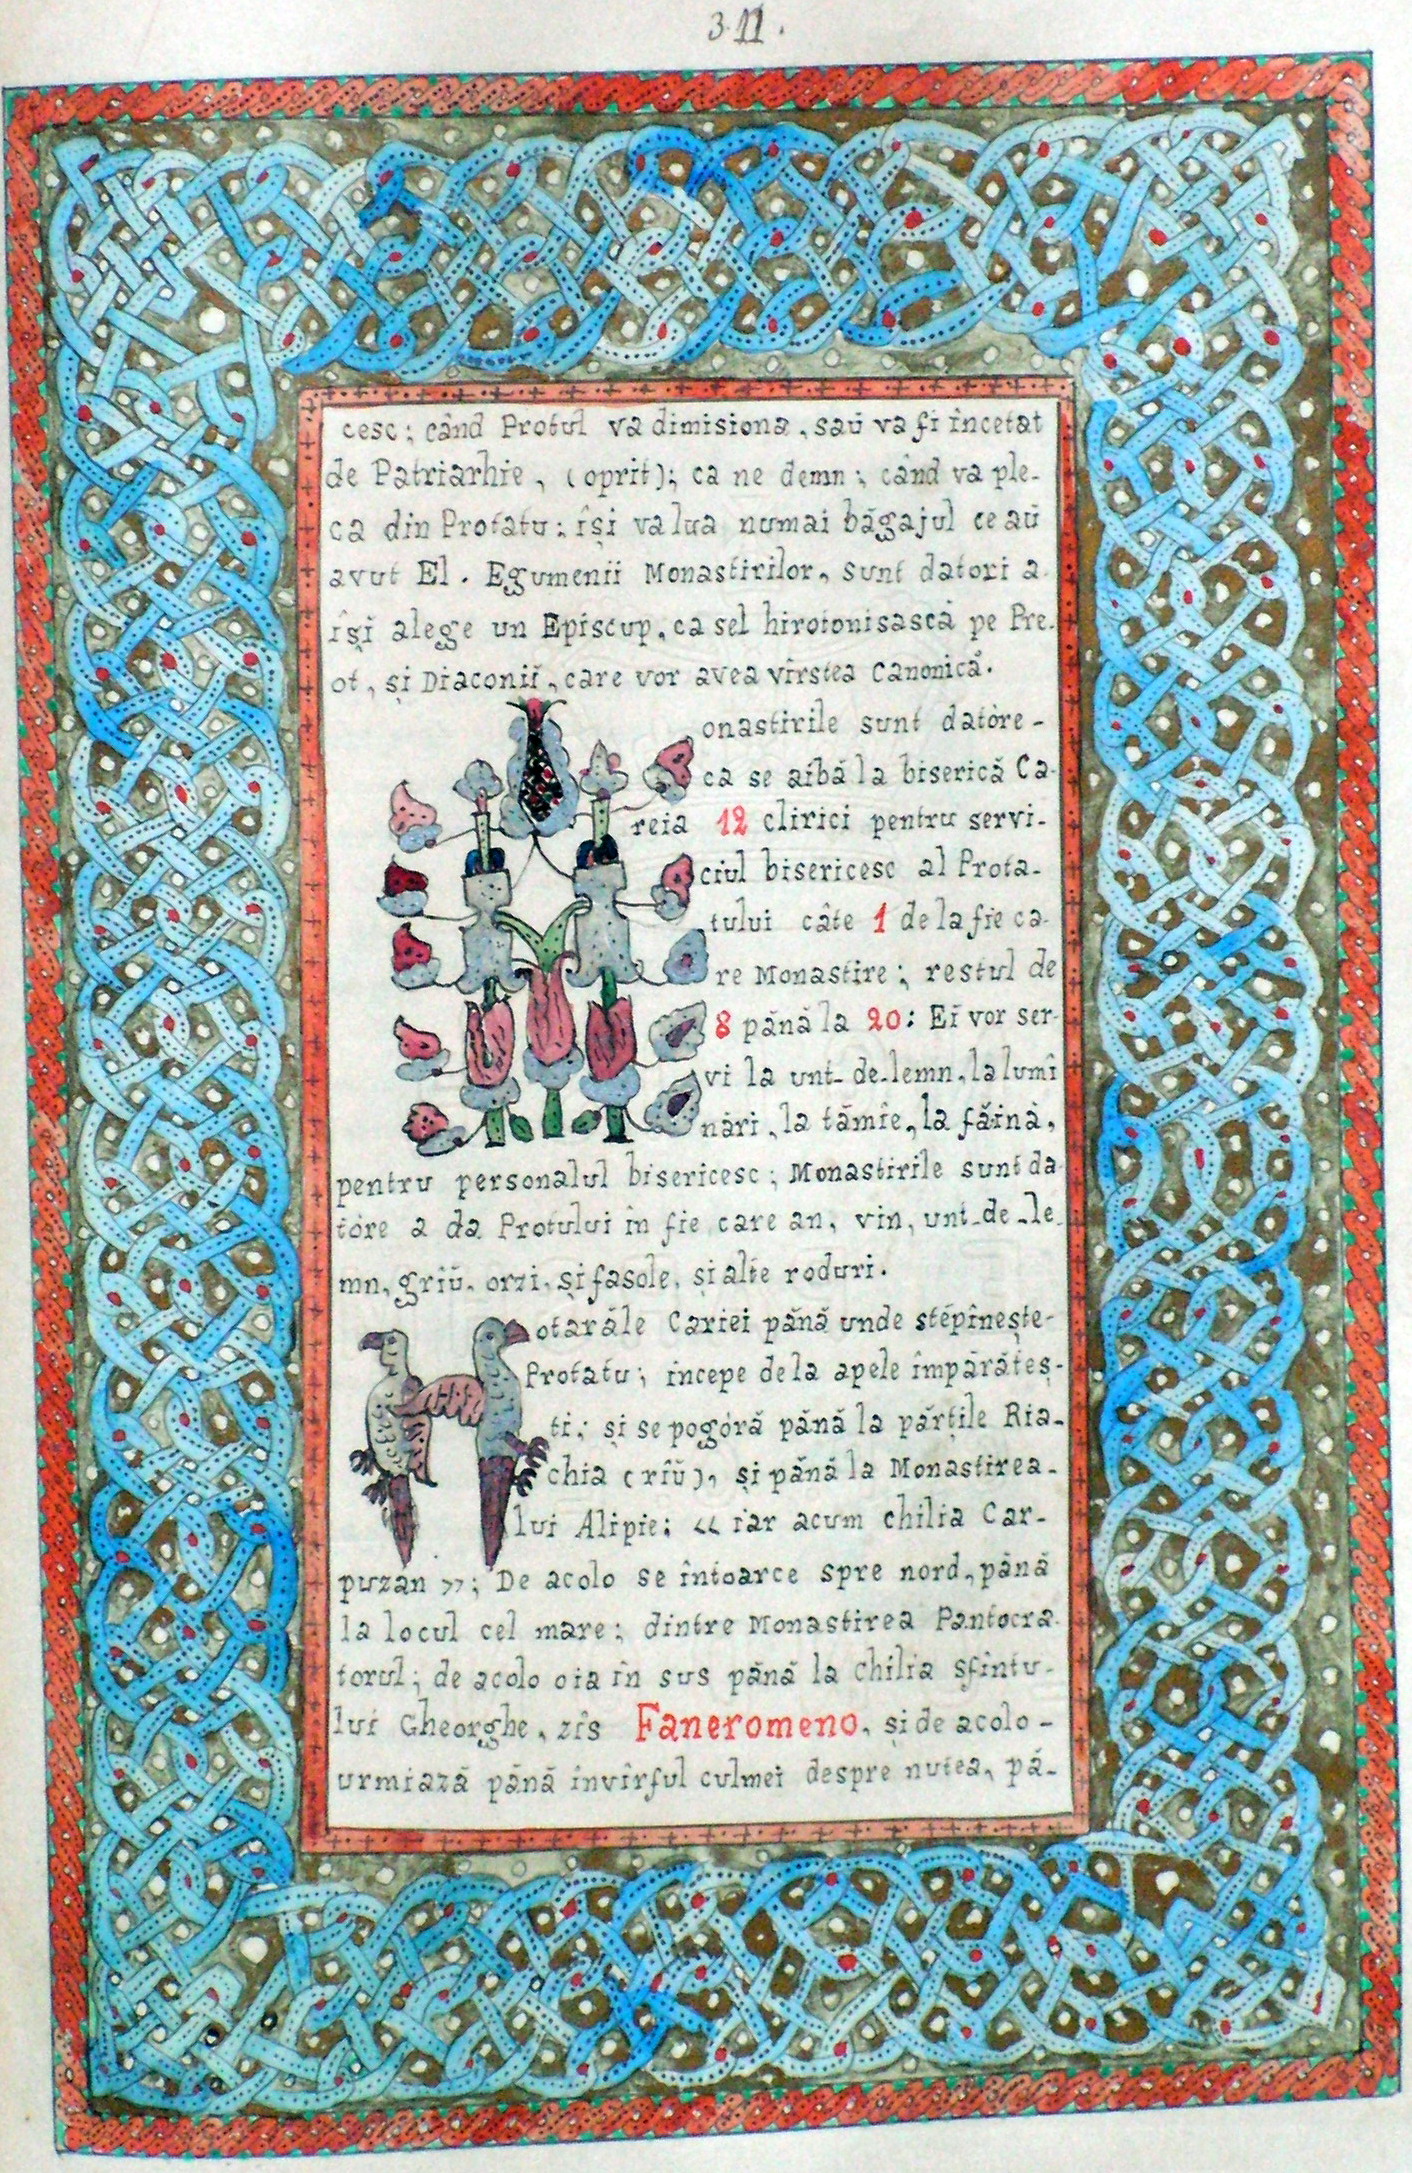 311.
cesc; când Protul va dimisiona, saŭ va fi încetat
de Patriarhie, (oprit); ca ne demn; când va ple-
ca din Protatu; își va lua numai băgajul ce aŭ
avut El. Egumenii Monastirilor, sunt datori a
își alege un Episcup, ca sel hirotonisască pe Pre-
ot, și Diaconiĭ, care vor avea vîrstea Canonică.
onastirile sunt datòre-
ca se aĭbă la biserică Ca-
reia 12 clirici pentru servi-
ciul bisericesc al Prota-
tului câte 1 de la fie ca-
re Monastire; restul de
8 pănă la 20: Eĭ vor ser-
vi la unt-de-lemn, la lumî
nări, la tămîe, la făină,
pentru personalul bisericesc; Monastirile sunt da-
tòre a da Protului în fie care an, vin, unt-de-le-
mn, grîŭ, orzi, și fasole, și alte roduri.
otarăle Cariei pănă unde stĕpînește-
Protatu; incepe de la apele împărătes-
ti; și se pogòră pănă la părțile Ria-
chia (rîŭ), și pănă la Monastirea-
lui Alipie; << iar acum chilia Car-
puzan >>; De acolo se întoarce spre nord, pănă
la locul cel mare; dintre Monastirea Pantocra-
torul; de acolo oia în sus pănă la chilia sfîntu-
lui Gheorghe, zîs Faneromeno, și de acolo-
urmiază pănă învîrful culmei despre nutea, pă-